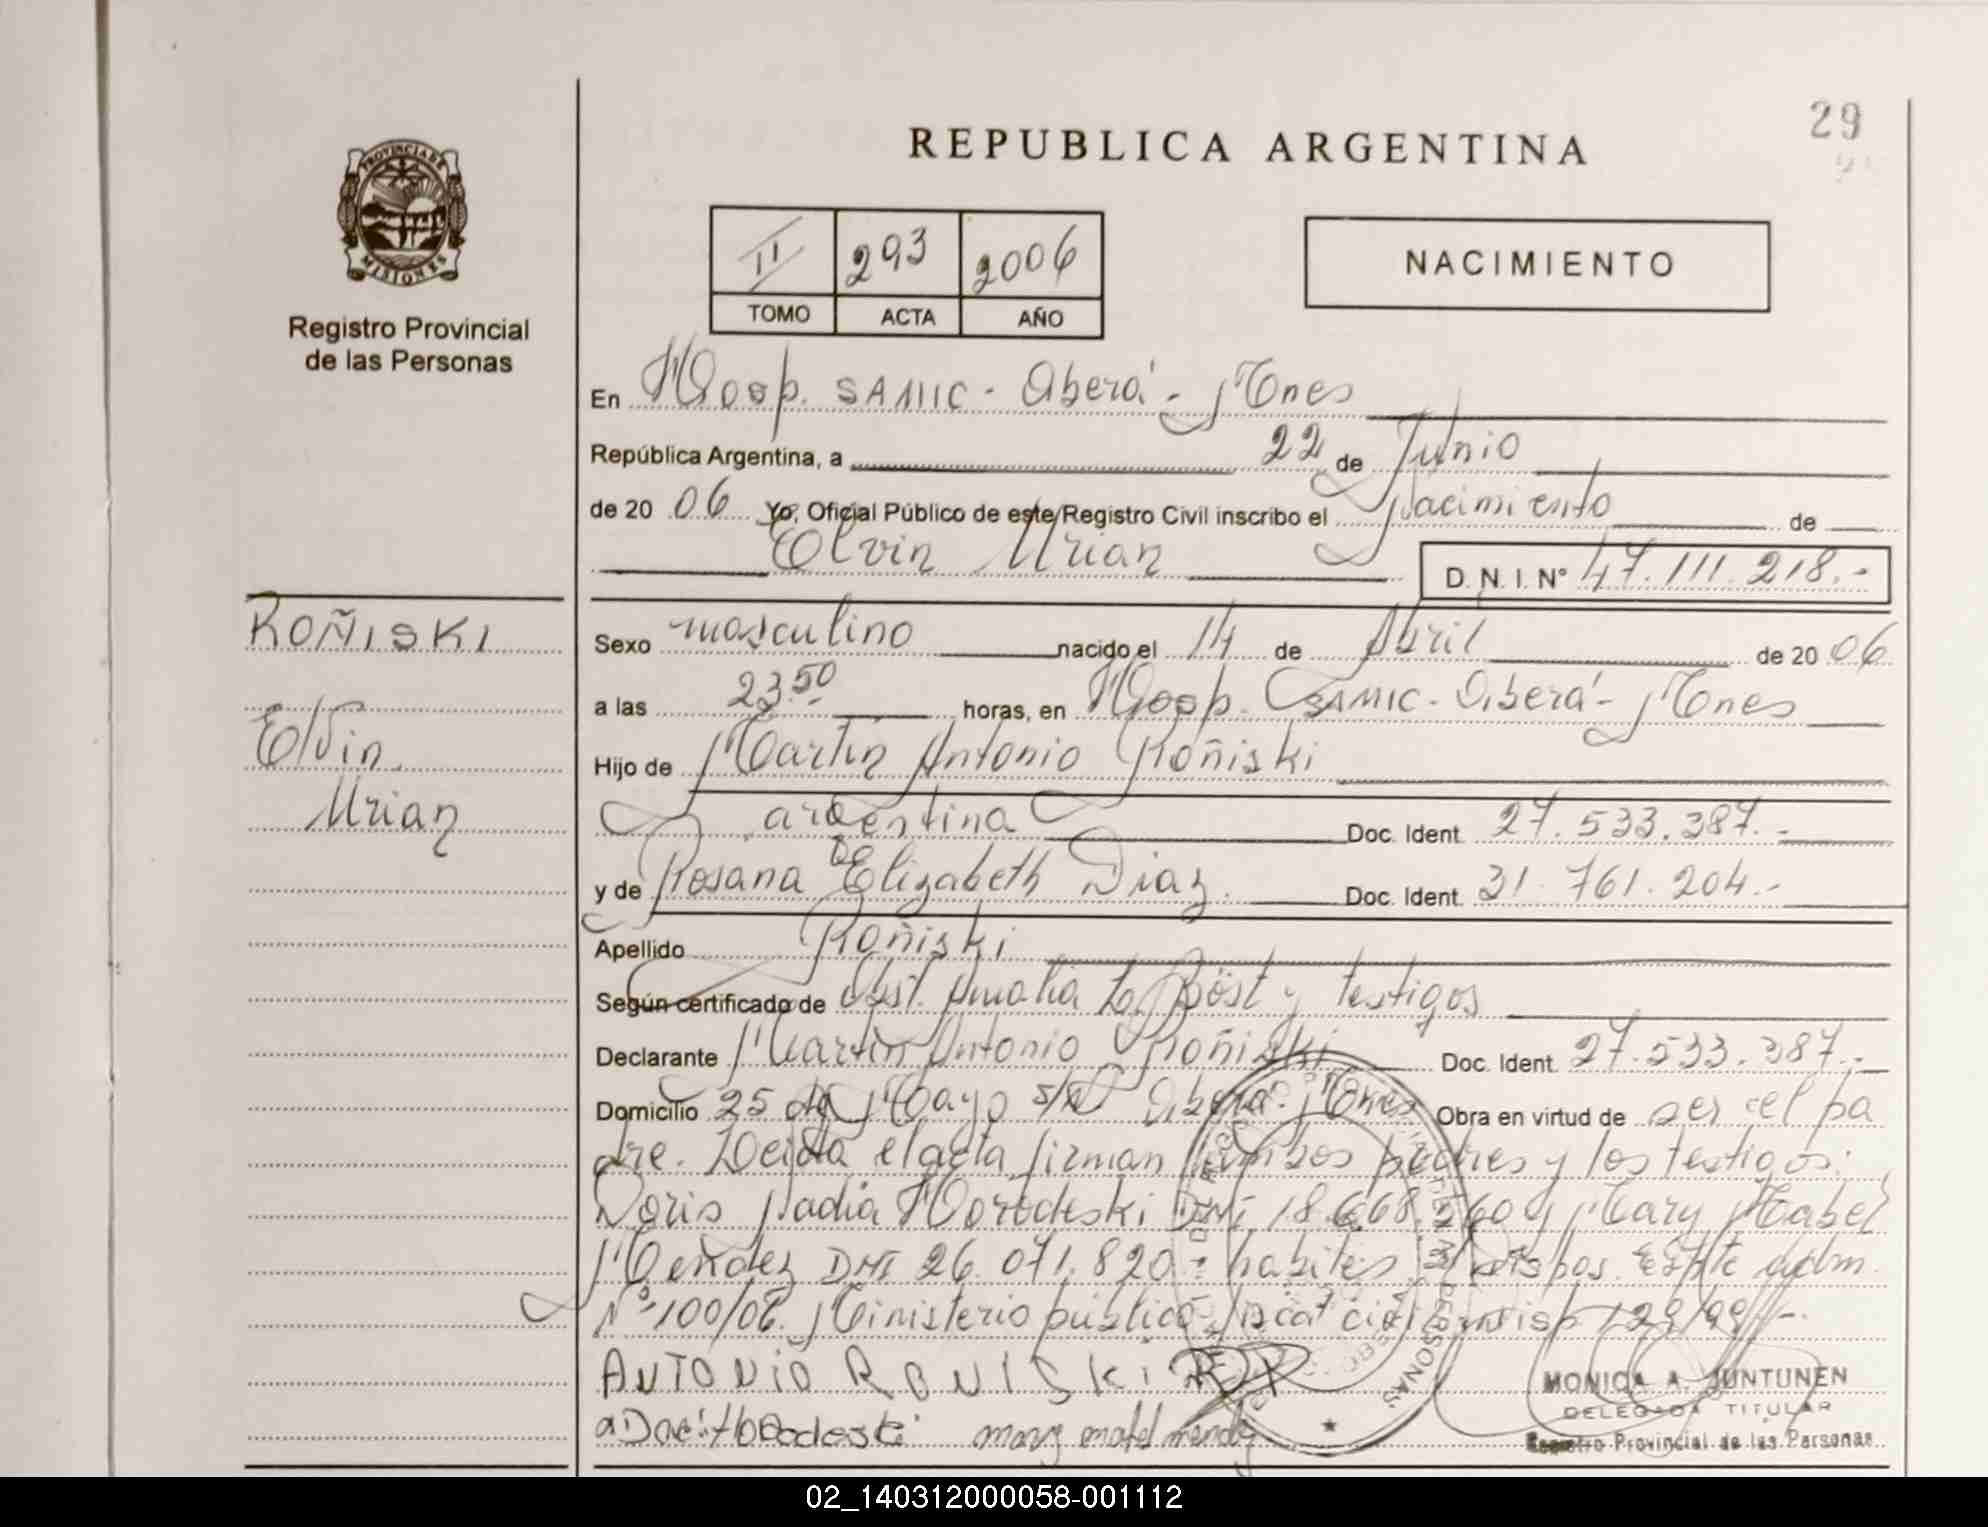 29
REPUBLICA ARGENTINA
PROVINCIA DE
MISIONES
Registro Provincial
de las Personas
II 293 2006
TOMO ACTA AÑO
NACIMIENTO
En Hosp. SAMIC - Oberá - Mnes
República Argentina, a 22 de Junio
de 20 06 Yo, Oficial Público de este Registro Civil inscribo el Nacimiento de
Elvin Urian
D. N. I. Nº 47.111.218.-
ROÑISKI
Elvin
Urian
Sexo masculino nacido el 14 de Abril de 20 06
a las 23.50 horas, en Hosp. SAMIC - Oberá - Mnes
Hijo de Martin Antonio Roñiski
argentina Doc. Ident. 27.533.387.-
y de Rosana Elizabeth Diaz. Doc. Ident. 31.761.204.-
Apellido Roñiski
Según certificado de Obst. Amalia L. Böst y testigos
Declarante Martin Antonio Roñiski Doc. Ident. 27.533.387.-
Domicilio 25 de Mayo s/n Oberá - Mnes Obra en virtud de ser el pa
dre. Leida el acta firman ambos padres y los testigos:
Doris Nadia DNI 18.668.560 y Mary Mabel
Mendez DNI 26.071.820 - habiles Expte adm.
Nº 100/06. Ministerio público fiscal civil 129/99 -
ANTONIO RONISKI
mary mabel mendez
MONICA A. JUNTUNEN
DELEGADA TITULAR
Registro Provincial de las Personas
02_140312000058-001112